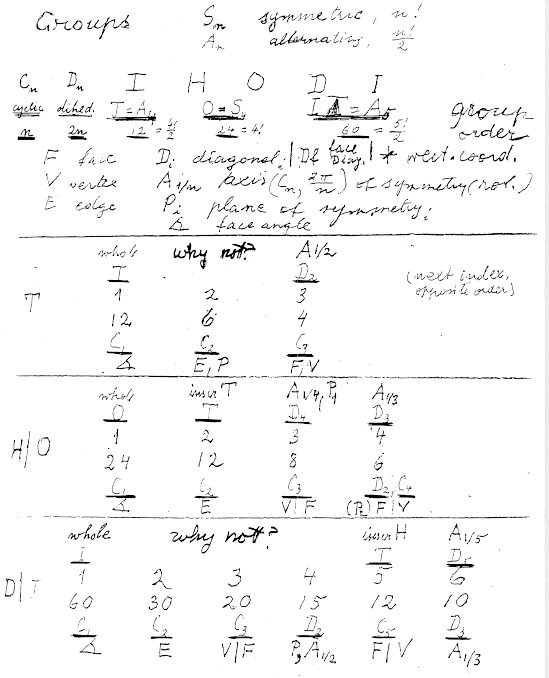 Groups Sn symmetric, n!
An alternating, n!/2
Cn Dn I H O D I
cyclic dihed. T=A4 O=S4 I=A5 group
n 2n 12=4!/2 24=4! 60=5!/2 order
F face Di diagonal; | Df face Diag. | * vert.coord.
V vertex A1/n axis (Cn, 2π/n) of symmetry (rot.)
E edge Pi plane of symmetry;
∡ face angle
whole why not? A1/2
T D2 (next index,
T 1 2 3 opposite order)
12 6 4
C1 C2 C3
∡ E, P F, V
whole inscr T A1/4, P1 A1/3
O T D4 D3
1 2 3 4
H/O 24 12 8 6
C1 C2 C3 D2, C4
∡ E V|F (P2) F|V
whole why not? inscr H A1/5
I T D5
D|I 1 2 3 4 5 6
60 30 20 15 12 10
C1 C2 C3 D2 C5 D3
∡ E V|F P, A1/2 F|V A1/3